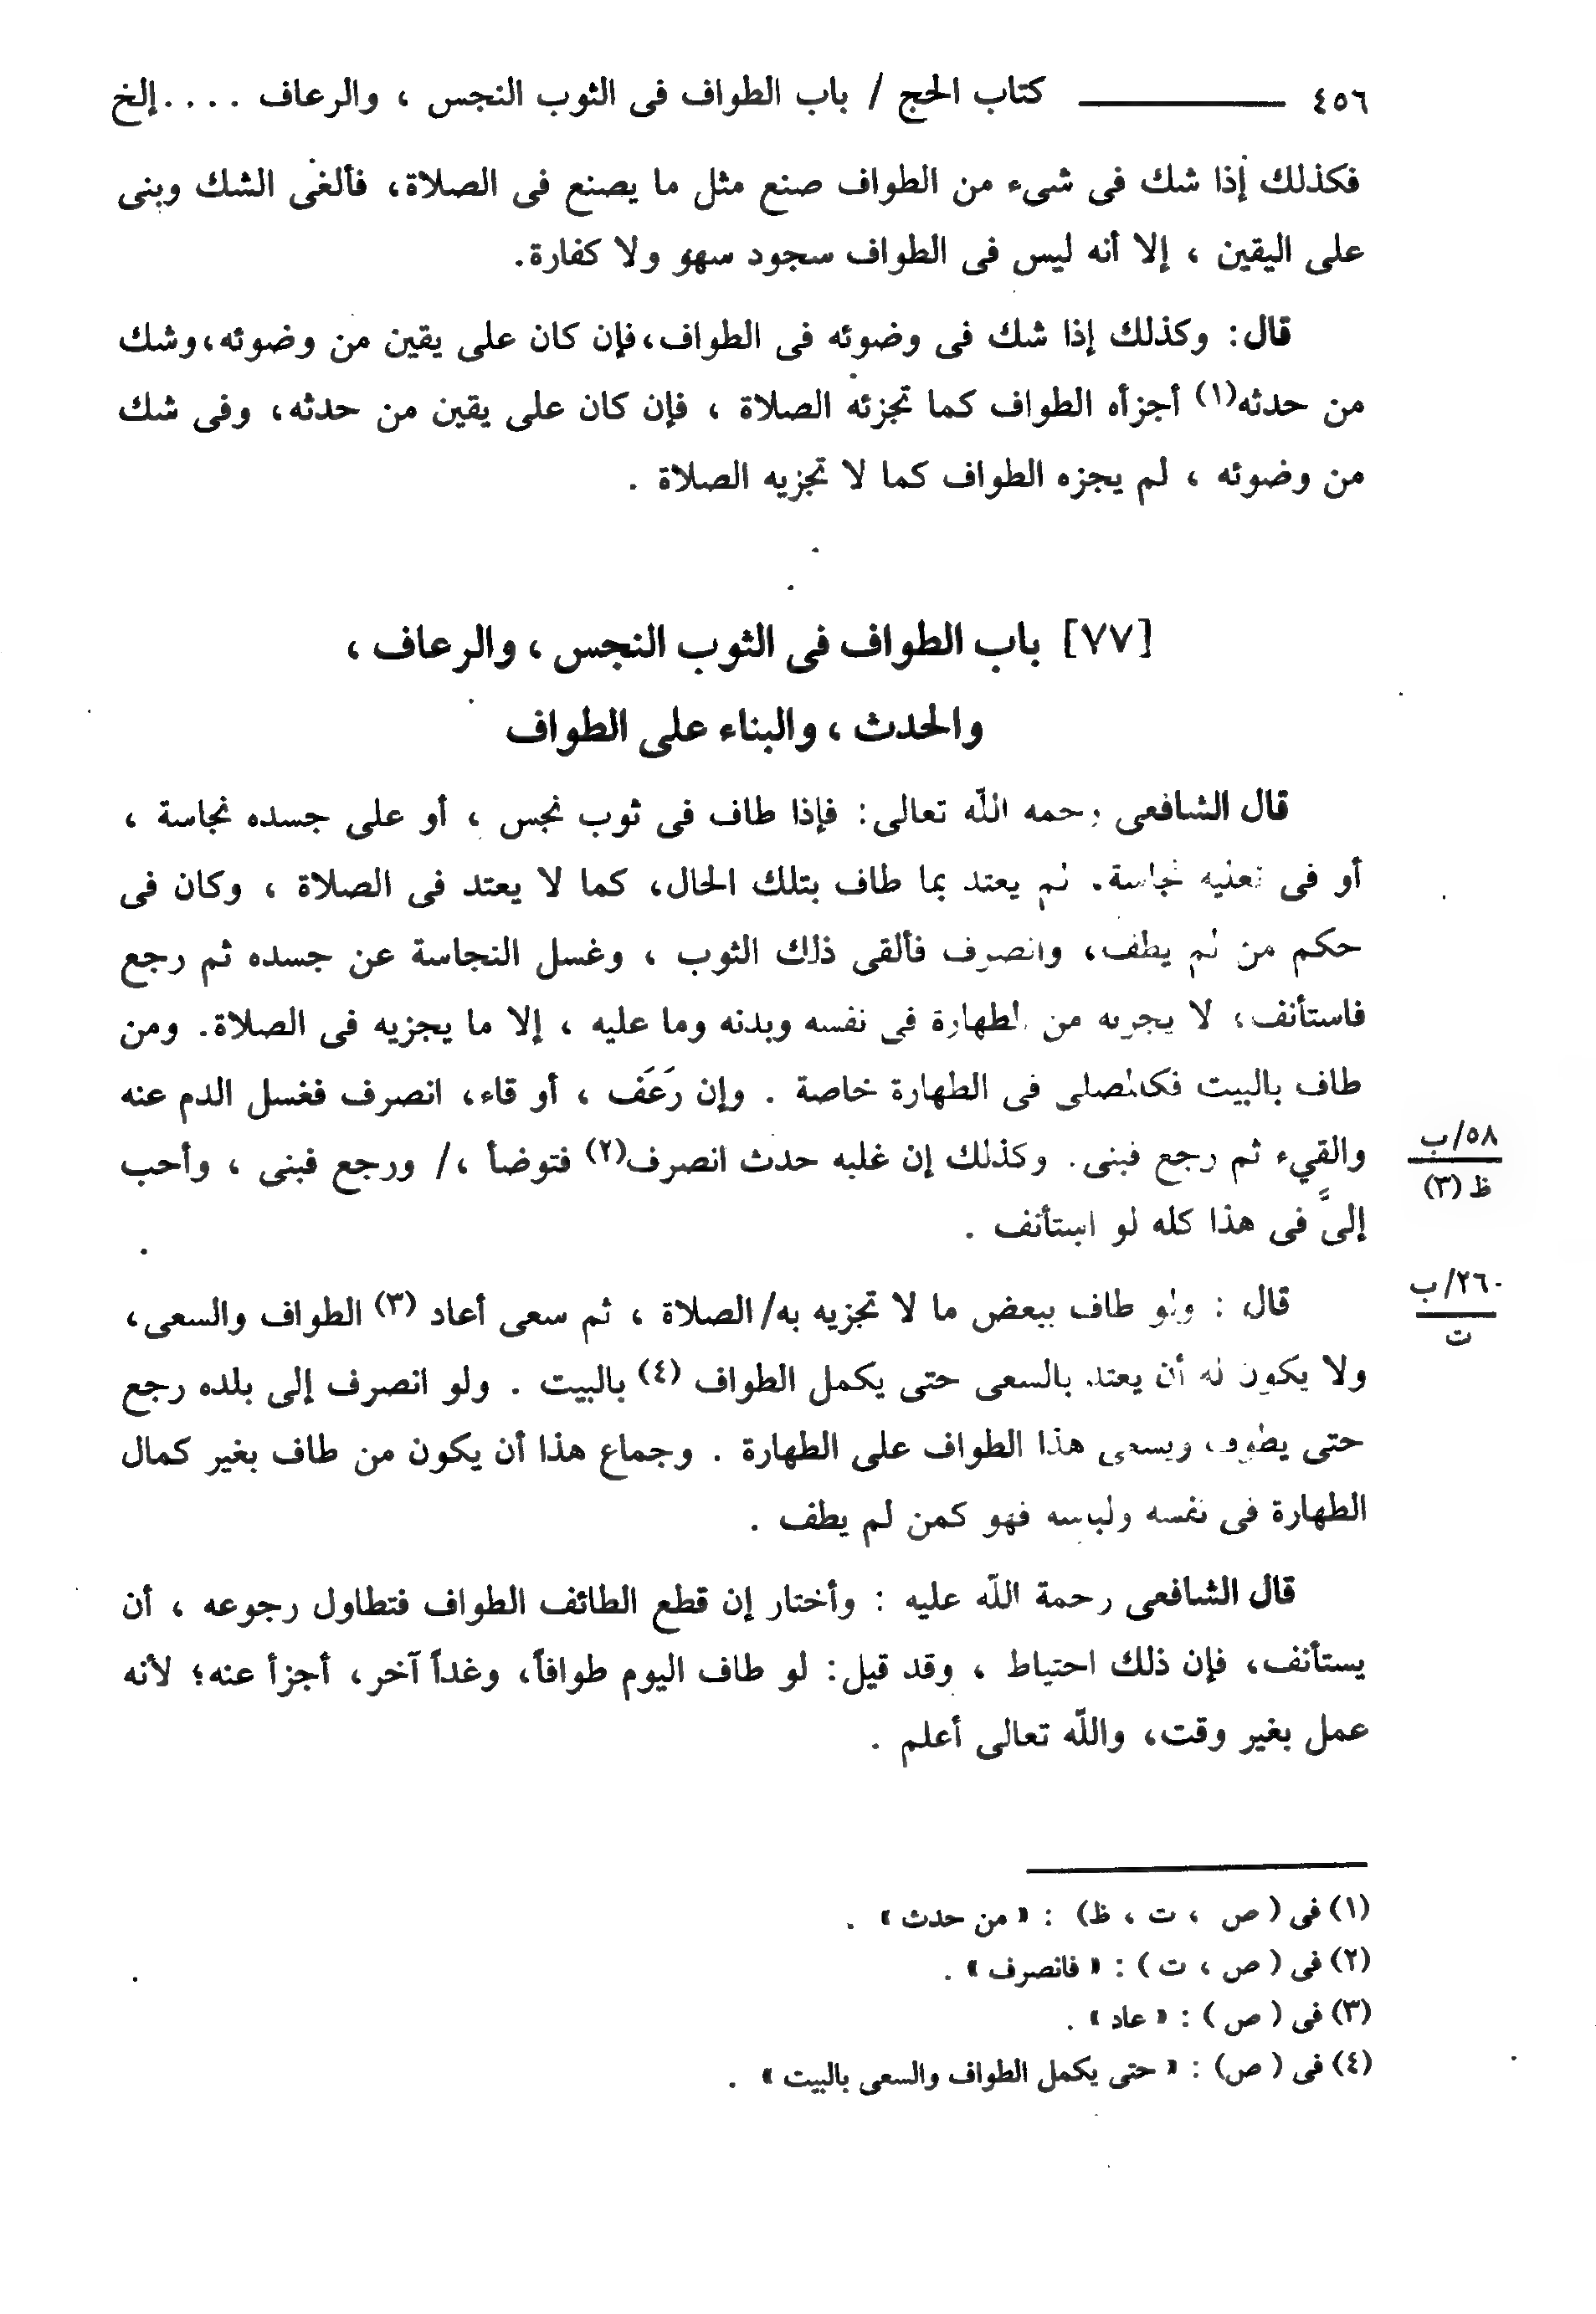 ٤٥٦ ـــــــــــ كتاب الحج / باب الطواف فى الثوب النجس ، والرعاف . . . .إلخ
فكذلك إذا شك فى شىء من الطواف صنع مثل ما يصنع فى الصلاة، فألغى الشك وبنى
على اليقين ، إلا أنه ليس فى الطواف سجود سهو ولا كفارة.
قال: وكذلك إذا شك فى وضوئه فى الطواف،فإن كان على يقين من وضوئه،وشك
من حدثه(١) أجزأه الطواف كما تجزئه الصلاة ، فإن كان على يقين من حدثه، وفى شك
من وضوئه ، لم يجزه الطواف كما لا تجزيه الصلاة .
[٧٧] باب الطواف فى الثوب النجس ، والرعاف ،
والحدث ، والبناء على الطواف
قال الشافعى رحمه اللّه تعالى: فإذا طاف فى ثوب نجس ، أو على جسده نجاسة ،
أو فى نعليه نجاسة. لم يعتد بما طاف بتلك الحال، كما لا يعتد فى الصلاة ، وكان فى
حكم من لم يطف، وانصرف فألقى ذلك الثوب ، وغسل النجاسة عن جسده ثم رجع
فاستأنف، لا يجزيه من الطهارة فى نفسه وبدنه وما عليه ، إلا ما يجزيه فى الصلاة. ومن
طاف بالبيت فكالمصلى فى الطهارة خاصة . وإن رَعَف ، أو قاء، انصرف فغسل الدم عنه
والقيء ثم رجع فبنى. وكذلك إن غلبه حدث انصرف(٢) فتوضأ ،/ ورجع فبنى ، وأحب
٥٨/ب
ظ (٣)
إلىَّ فى هذا كله لو استأنف .
قال : ولو طاف ببعض ما لا تجزيه به/ الصلاة ، ثم سعى أعاد (٣) الطواف والسعى،
٢٦٠/ب
ت
ولا يكون له أن يعتد بالسعى حتى يكمل الطواف (٤) بالبيت . ولو انصرف إلى بلده رجع
حتى يطوف ويسعى هذا الطواف على الطهارة . وجماع هذا أن يكون من طاف بغير كمال
الطهارة فى نفسه ولباسه فهو كمن لم يطف .
قال الشافعى رحمة اللّه عليه : وأختار إن قطع الطائف الطواف فتطاول رجوعه ، أن
يستأنف، فإن ذلك احتياط ، وقد قيل: لو طاف اليوم طوافاً، وغداً آخر، أجزأ عنه؛ لأنه
عمل بغير وقت، واللّه تعالى أعلم .
(١) فى ( ص ، ت ، ظ) : « من حدث » .
(٢) فى ( ص ، ت ) : « فانصرف » .
(٣) فى ( ص ) : « عاد » .
(٤) فى ( ص) : « حتى يكمل الطواف والسعى بالبيت » .